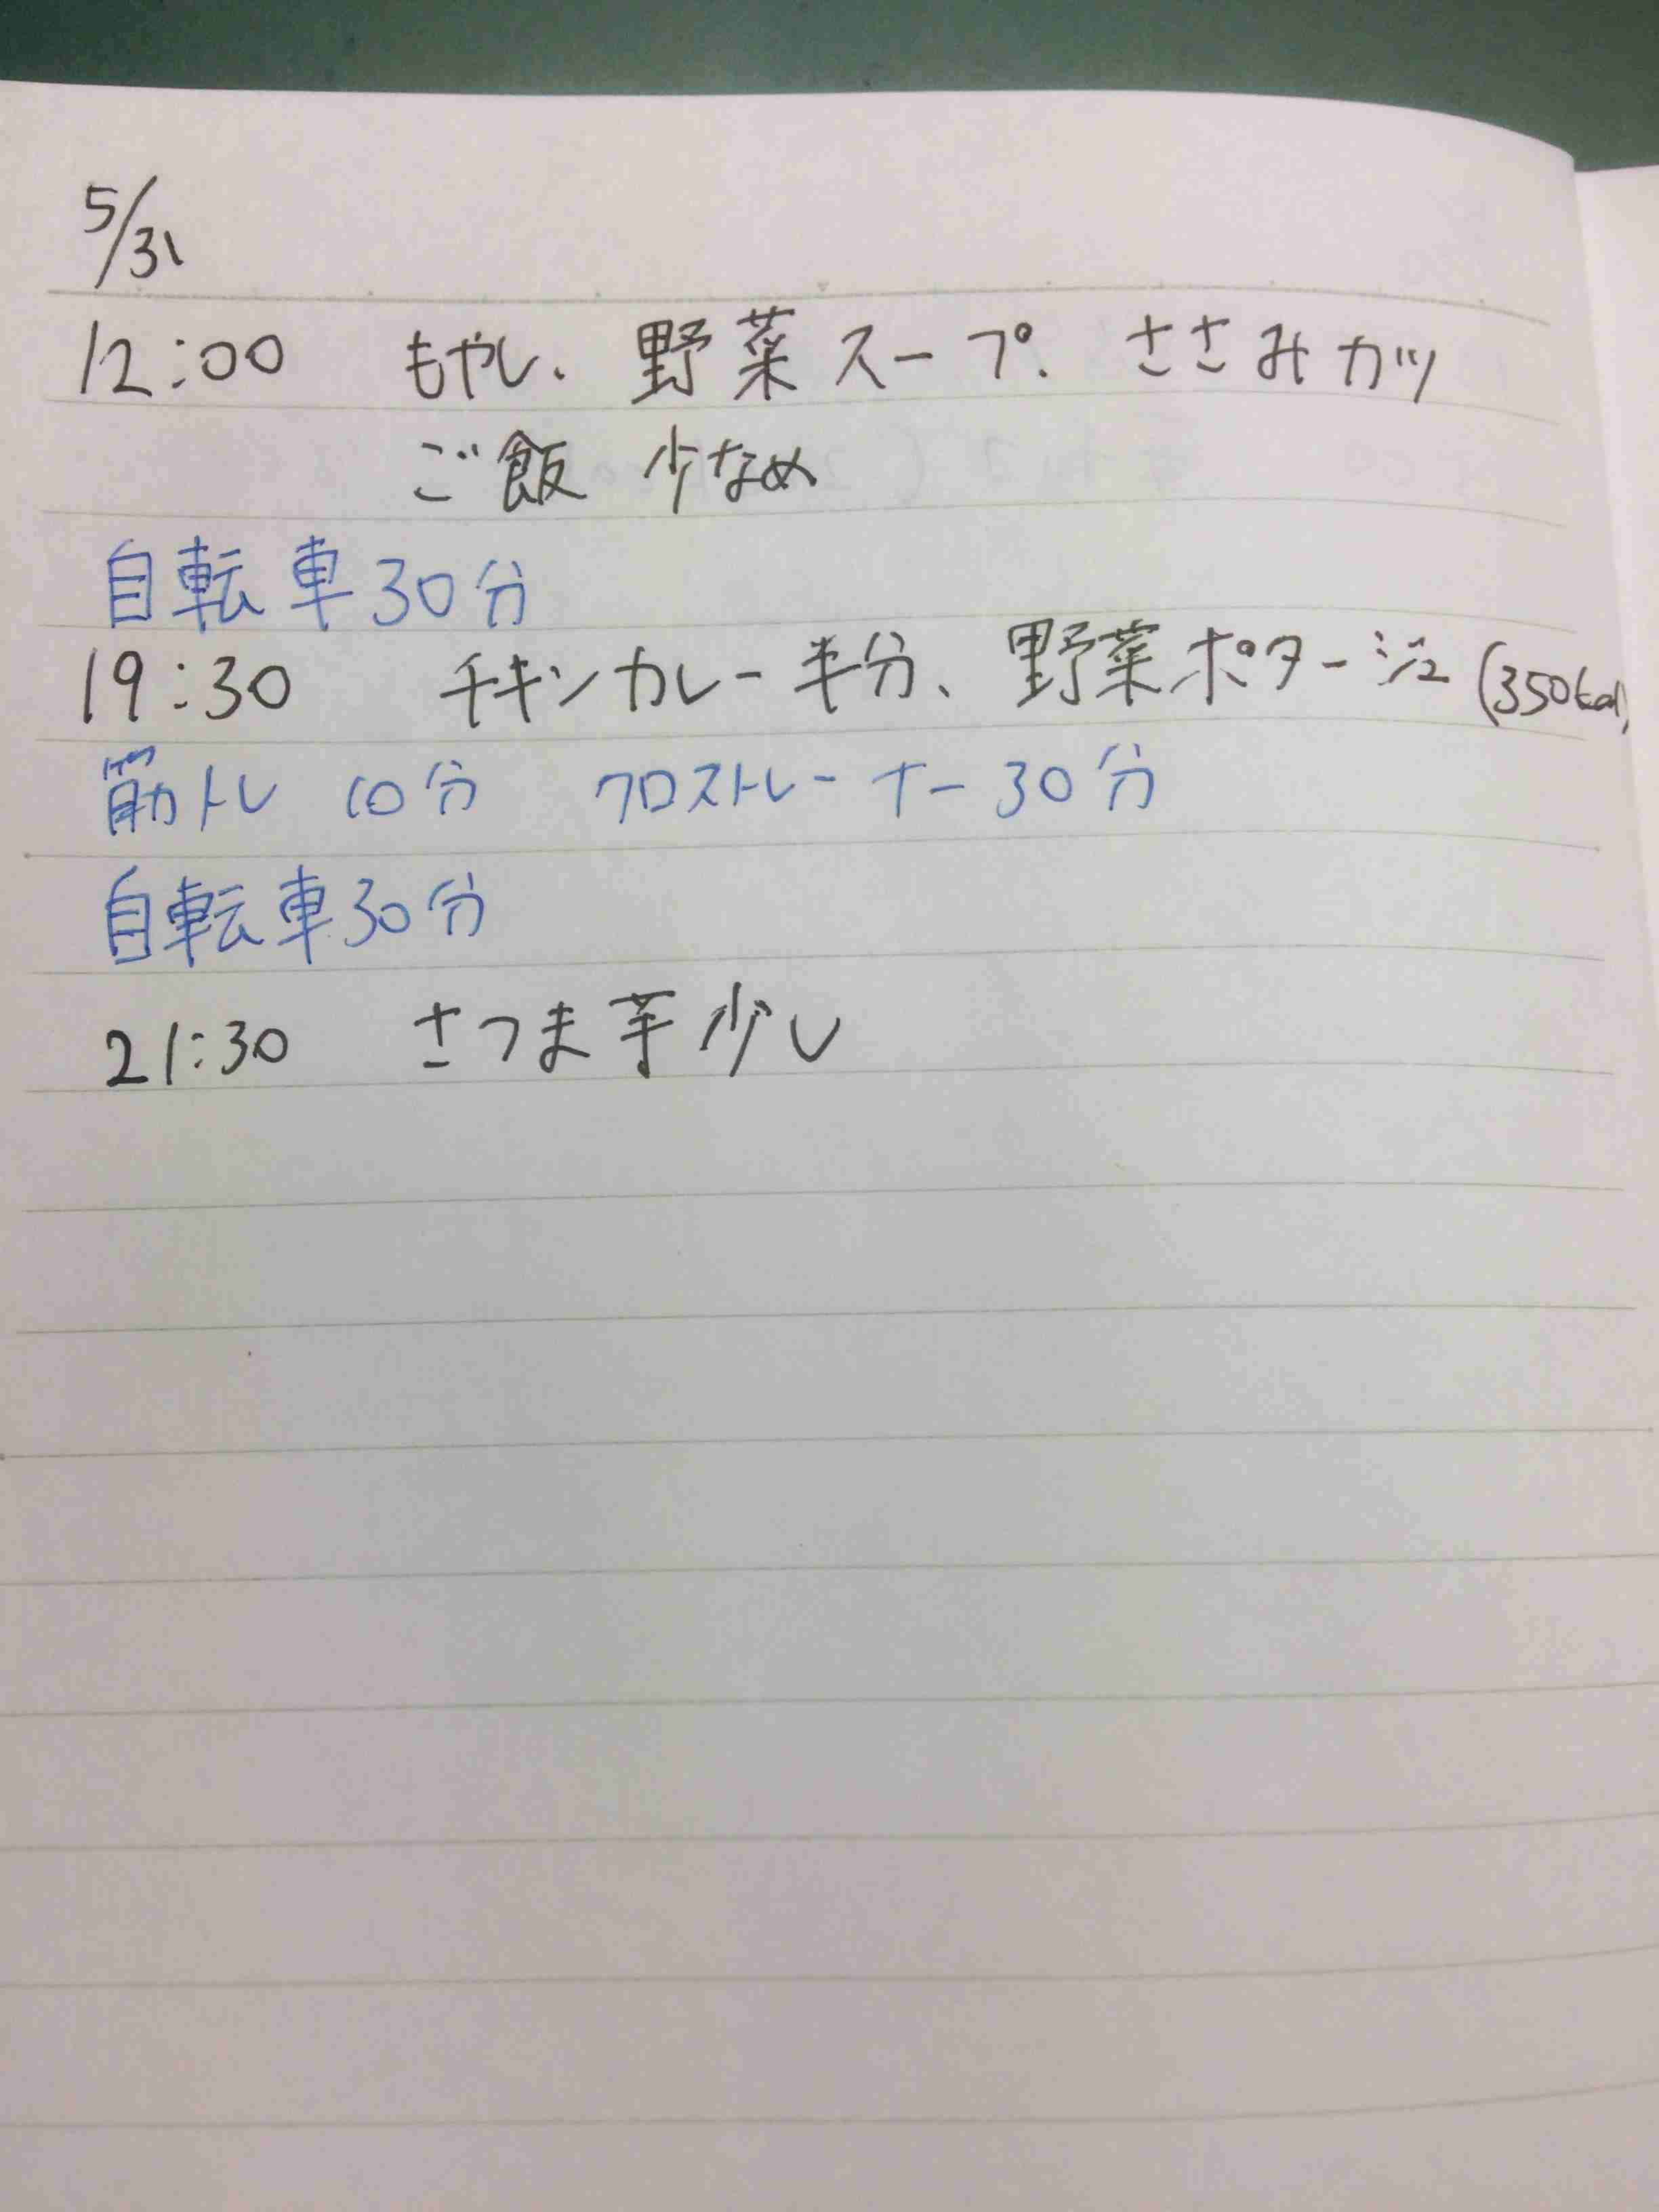 5/31
12:00 もやし、野菜スープ、ささみカツ
ご飯 少なめ
自転車30分
19:30 チキンカレー半分、野菜ポタージュ(350kcal)
筋トレ 10分 クロストレーナー30分
自転車30分
21:30 さつま芋少し